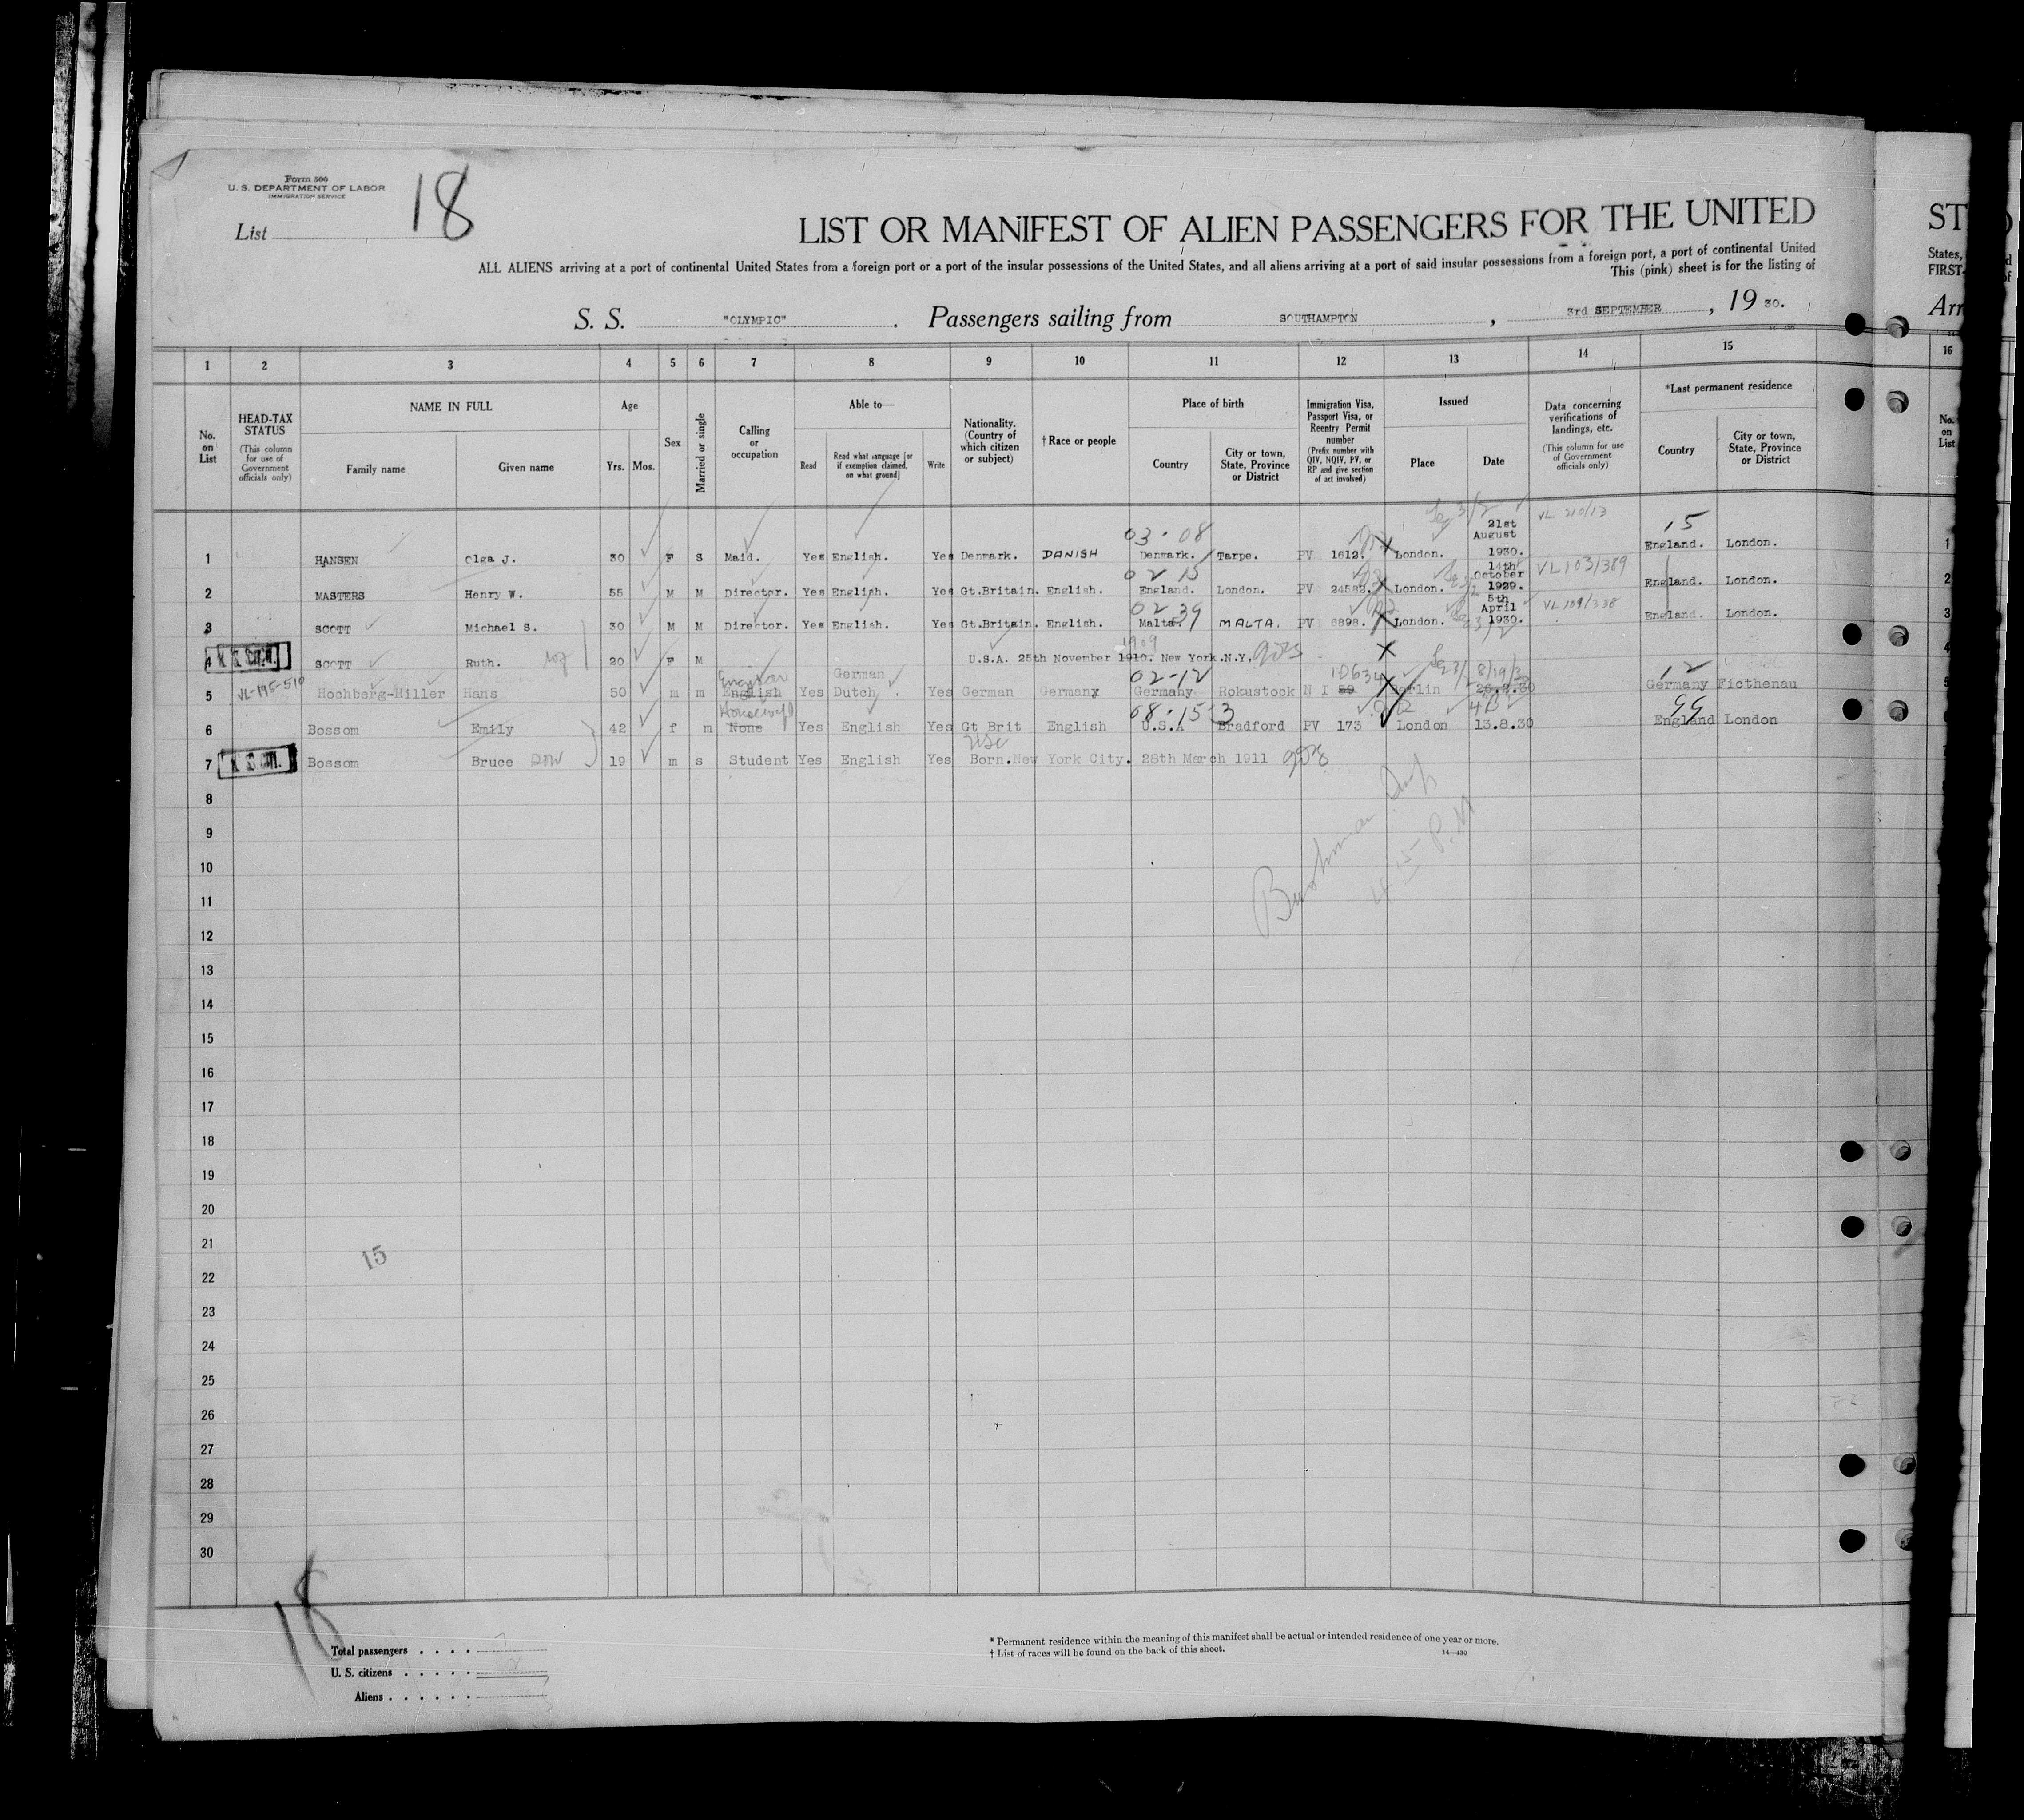 Form 500
U. S. DEPARTMENT OF LABOR
IMMIGRATION SERVICE
List 18
LIST OR MANIFEST OF ALIEN PASSENGERS FOR THE UNITED
ST
ALL ALIENS arriving at a port of continental United States from a foreign port or a port of the insular possessions of the United States, and all aliens arriving at a port of said insular possessions from a foreign port, a port of continental United
States,
This (pink) sheet is for the listing of
FIRST-
S. S. "OLYMPIC". Passengers sailing from SOUTHAMPTON, 3rd SEPTEMBER, 19 30.
Arr
1 2 3 4 5 6 7 8 9 10 11 12 13 14 15 16
No. on List
HEAD-TAX STATUS (This column for use of Government officials only)
NAME IN FULL
Family name
Given name
Age
Yrs.
Mos.
Sex
Married or single
Calling or occupation
Able to—
Read
Read what language [or if exemption claimed, on what ground]
Write
Nationality. (Country of which citizen or subject)
†Race or people
Place of birth
Country
City or town, State, Province or District
Immigration Visa, Passport Visa, or Reentry Permit number (Prefix number with QIV, NQIV, PV, or RP and give section of act involved)
Issued
Place
Date
Data concerning verifications of landings, etc. (This column for use of Government officials only)
*Last permanent residence
Country
City or town, State, Province or District
No. on List
03-08 21st August VL 210/13 15
1 HANSEN Olga J. 30 F S Maid. Yes English. Yes Denmark. DANISH Denmark. Tarpe. PV 1612. London. 1930. England. London. 1
02 15 14th October VL 103/389
2 MASTERS Henry W. 55 M M Director. Yes English. Yes Gt.Britain. English. England. London. PV 24582. London. 1929. England. London. 2
02 39 5th April VL 109/338
3 SCOTT Michael S. 30 M M Director. Yes English. Yes Gt.Britain. English. Malta. MALTA. PV 6898. London. 1930. England. London. 3
1909
4 SCOTT Ruth. 20 F M U.S.A. 25th November 1910. New York.N.Y. 4
VL-195-510 German 02-12 10634 8/19/30 12
5 Hochberg-Hiller Hans 50 m m English Yes Dutch. Yes German German Germany Rokustock N I 59 Berlin Germany Ficthenau 5
Housewife 08-15-3 99
6 Bossom Emily 42 f m None Yes English Yes Gt Brit English U.S.A Bradford PV 173 London 13.8.30 England London
USC
7 Bossom Bruce 19 m s Student Yes English Yes Born.New York City. 28th March 1911
8
9
10
11
12
13
14
15
16
17
18
19
20
21
15
22
23
24
25
26
27
28
29
30
18
Total passengers . . . . 7
U. S. citizens . . . . . 2
Aliens . . . . . .
* Permanent residence within the meaning of this manifest shall be actual or intended residence of one year or more.
† List of races will be found on the back of this sheet.
14—430